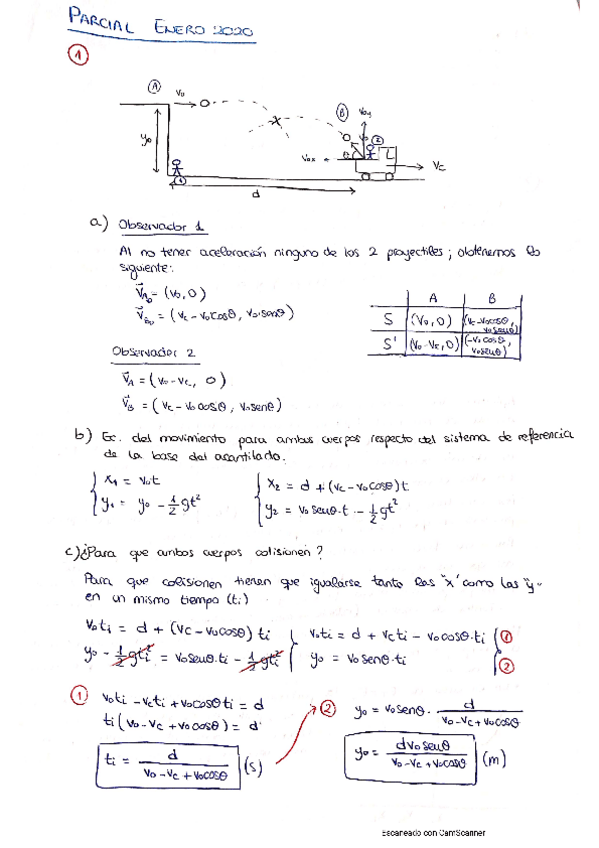 PARCIAL ENERO 2020
1
A
v₀
B
v₀y
2
y₀
v₀x
θ
L
v_c
1
d
a) Observador 1
Al no tener aceleración ninguno de los 2 proyectiles; obtenemos lo
siguiente:
v⃗A₀ = (v₀, 0)
v⃗B₀ = (v_c - v₀cosθ, v₀·senθ)
A B
S (v₀, 0) (v_c - v₀cosθ, v₀senθ)
S' (v₀ - v_c, 0) (-v₀cosθ, v₀senθ)
Observador 2
v⃗A = (v₀ - v_c, 0)
v⃗B = (v_c - v₀cosθ, v₀senθ)
b) Ec. del movimiento para ambos cuerpos respecto del sistema de referencia
de la base del acantilado.
x₁ = v₀t x₂ = d + (v_c - v₀cosθ)t
y₁ = y₀ - 1/2 gt² y₂ = v₀senθ·t - 1/2 gt²
c) ¿Para que ambos cuerpos colisionen?
Para que colisionen tienen que igualarse tanto las "x" como las "y"
en un mismo tiempo (ti)
v₀ti = d + (v_c - v₀cosθ)ti v₀ti = d + v_cti - v₀cosθ·ti 1
y₀ - 1/2 gti² = v₀senθ·ti - 1/2 gti² y₀ = v₀senθ·ti 2
1 v₀ti - v_cti + v₀cosθti = d 2 y₀ = v₀senθ · d/(v₀ - v_c + v₀cosθ)
ti(v₀ - v_c + v₀cosθ) = d
ti = d/(v₀ - v_c + v₀cosθ) (s) y₀ = dv₀senθ/(v₀ - v_c + v₀cosθ) (m)
Escaneado con CamScanner